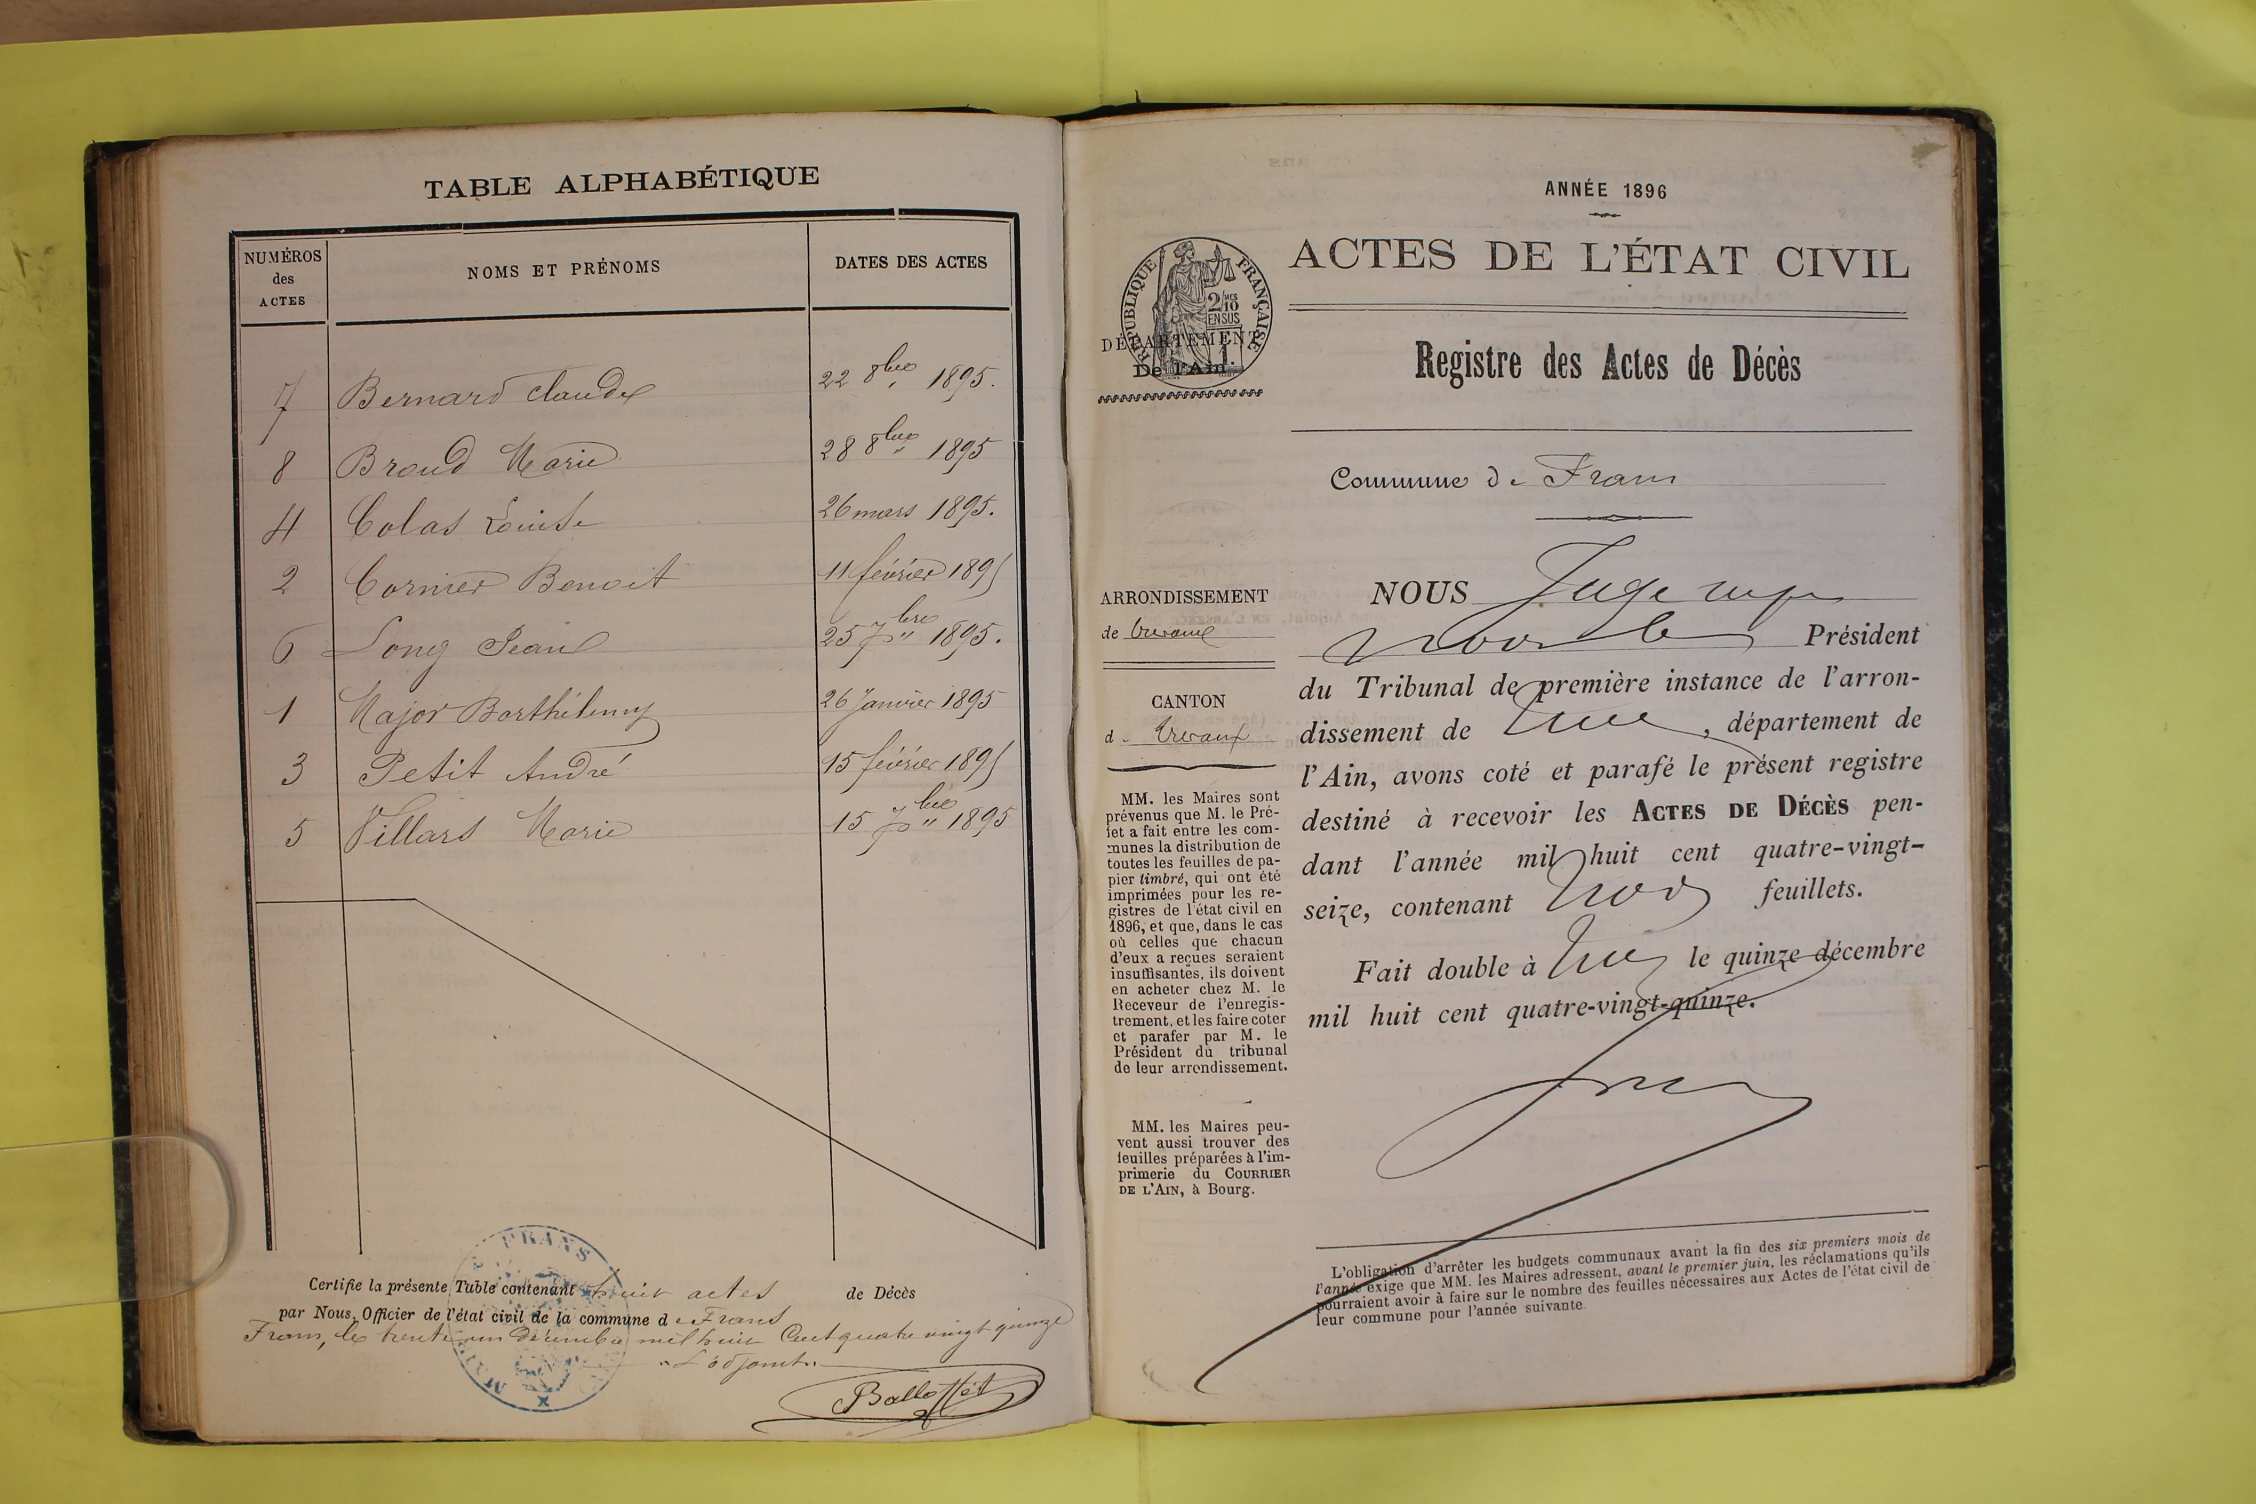 TABLE ALPHABÉTIQUE
NUMÉROS des ACTES
NOMS ET PRÉNOMS
DATES DES ACTES
7 Bernard Claude 22 8bre 1895.
8 Broud Marie 28 8bre 1895
4 Colas Louise 26 mars 1895.
2 Cornier Benoit 11 février 1895
6 Long Jean 25 7bre 1895.
1 Major Barthélemy 26 Janvier 1895
3 Petit André 15 février 1895
5 Villars Marie 15 7bre 1895
Certifie la présente Table contenant huit actes de Décès
par Nous, Officier de l'état civil de la commune de Frans
Frans, le trente un décembre mil huit Cent quatre vingt quinze
L'adjoint
Balloffet
FRANS
ANNÉE 1896
RÉPUBLIQUE FRANÇAISE
2/10 EN SUS
DÉPARTEMENT
De l'Ain.
ACTES DE L'ÉTAT CIVIL
Registre des Actes de Décès
Commune de Frans
ARRONDISSEMENT
de Trevoux
CANTON
de Trevoux
MM. les Maires sont
prévenus que M. le Pré-
fet a fait entre les com-
munes la distribution de
toutes les feuilles de pa-
pier timbré, qui ont été
imprimées pour les re-
gistres de l'état civil en
1896, et que, dans le cas
où celles que chacun
d'eux a reçues seraient
insuffisantes, ils doivent
en acheter chez M. le
Receveur de l'enregis-
trement, et les faire coter
et parafer par M. le
Président du tribunal
de leur arrondissement.
MM. les Maires peu-
vent aussi trouver des
feuilles préparées à l'im-
primerie du COURRIER
DE L'AIN, à Bourg.
NOUS Juge
Président
du Tribunal de première instance de l'arron-
dissement de , département de
l'Ain, avons coté et parafé le présent registre
destiné à recevoir les ACTES DE DÉCÈS pen-
dant l'année mil huit cent quatre-vingt-
seize, contenant trois feuillets.
Fait double à le quinze décembre
mil huit cent quatre-vingt-quinze.
L'obligation d'arrêter les budgets communaux avant la fin des six premiers mois de
l'année exige que MM. les Maires adressent, avant le premier juin, les réclamations qu'ils
pourraient avoir à faire sur le nombre des feuilles nécessaires aux Actes de l'état civil de
leur commune pour l'année suivante.